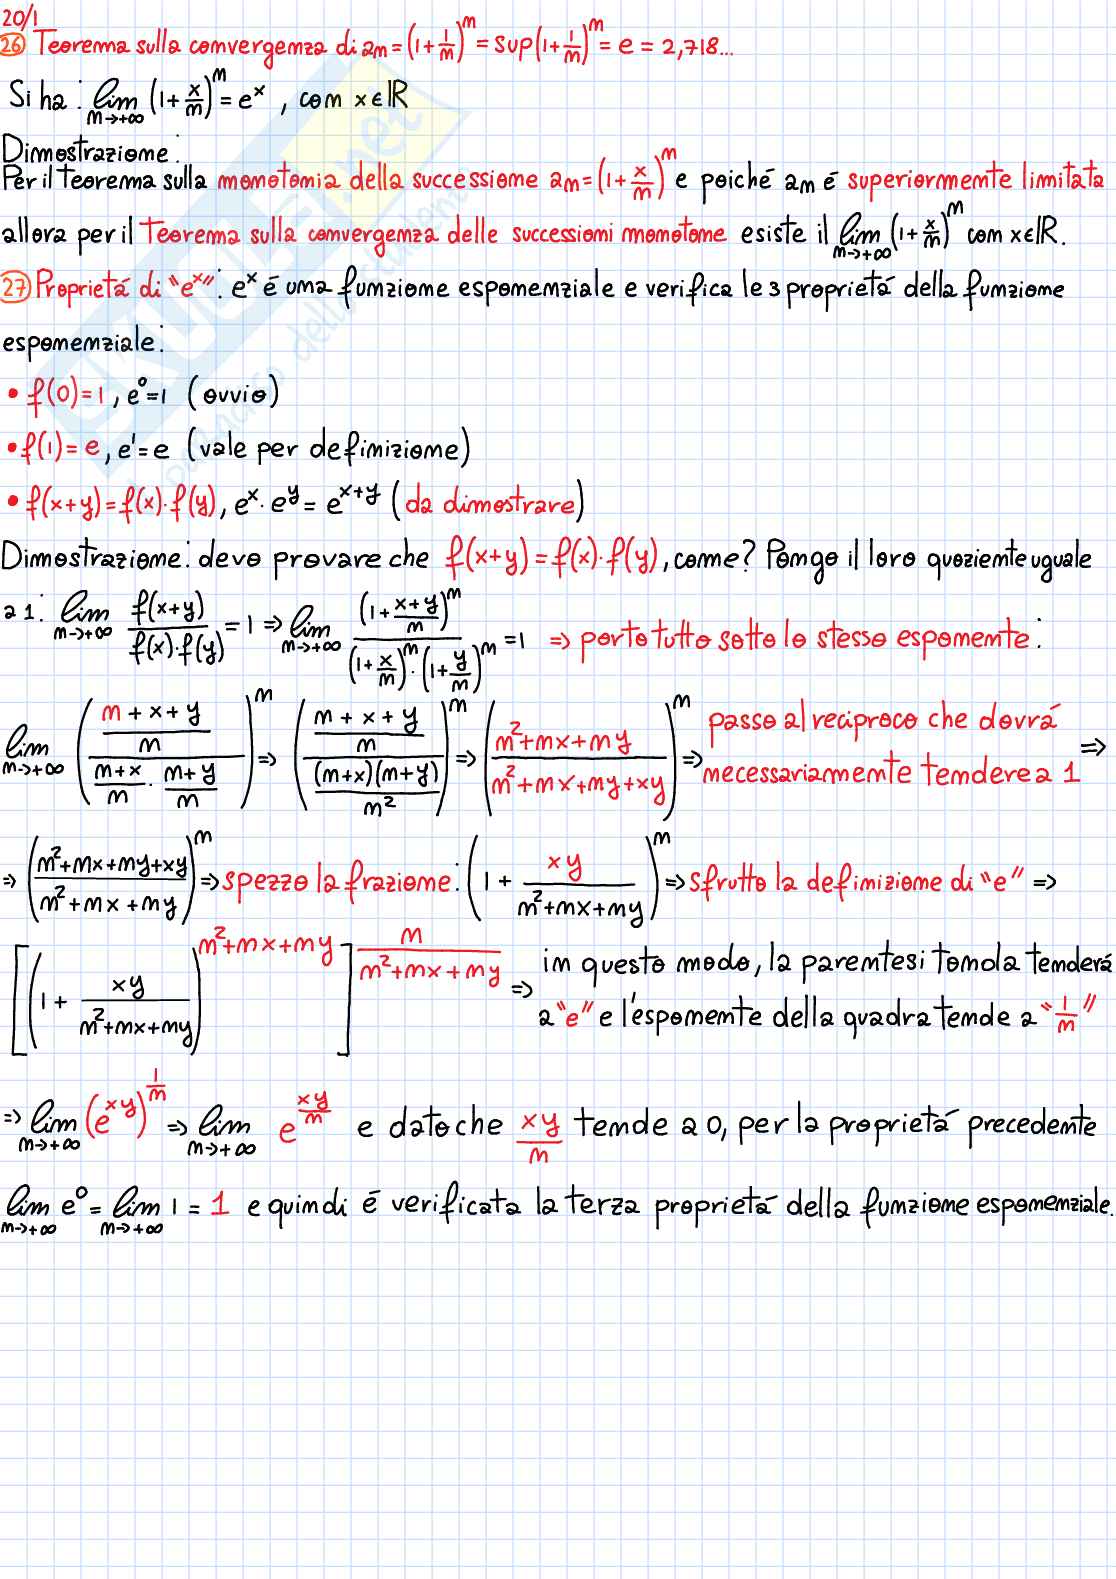 20/1
26 Teorema sulla convergenza di an = (1+1/n)^n = sup(1+1/n)^n = e = 2,718...
Si ha: lim n→+∞ (1+x/n)^n = e^x , con x∈ℝ
Dimostrazione:
Per il teorema sulla monotonia della successione an=(1+x/n)^n e poiché an é superiormente limitata
allora per il Teorema sulla convergenza delle successioni monotone esiste il lim n→+∞ (1+x/n)^n con x∈ℝ.
27 Proprietá di "e^x": e^x é una funzione esponenziale e verifica le 3 proprietá della funzione
esponenziale:
• f(0)=1, e^0=1 (ovvio)
• f(1)=e, e^1=e (vale per definizione)
• f(x+y)=f(x)·f(y), e^x·e^y = e^x+y (da dimostrare)
Dimostrazione: devo provare che f(x+y)=f(x)·f(y), come? Pongo il loro quoziente uguale
a 1: lim n→+∞ f(x+y)/(f(x)·f(y)) = 1 ⇒ lim n→+∞ (1+(x+y)/n)^n / ((1+x/n)^n·(1+y/n)^n) = 1 ⇒ porto tutto sotto lo stesso esponente:
lim n→+∞ (((n+x+y)/n)/((n+x)/n · (n+y)/n))^n ⇒ (((n+x+y)/n)/((n+x)(n+y)/n²))^n ⇒ ((n²+nx+ny)/(n²+nx+ny+xy))^n ⇒ passo al reciproco che dovrá necessariamente tendere a 1 ⇒
⇒ ((n²+nx+ny+xy)/(n²+nx+ny))^n ⇒ spezzo la frazione: (1 + xy/(n²+nx+ny))^n ⇒ sfrutto la definizione di "e" ⇒
[(1 + xy/(n²+nx+ny))^(n²+nx+ny)]^(n/(n²+nx+ny)) ⇒ in questo modo, la parentesi tonda tenderá
a "e" e l'esponente della quadra tende a "1/n"
⇒ lim n→+∞ (e^xy)^(1/n) ⇒ lim n→+∞ e^(xy/n) e dato che xy/n tende a 0, per la proprietá precedente
lim n→+∞ e^0 = lim n→+∞ 1 = 1 e quindi é verificata la terza proprietá della funzione esponenziale.